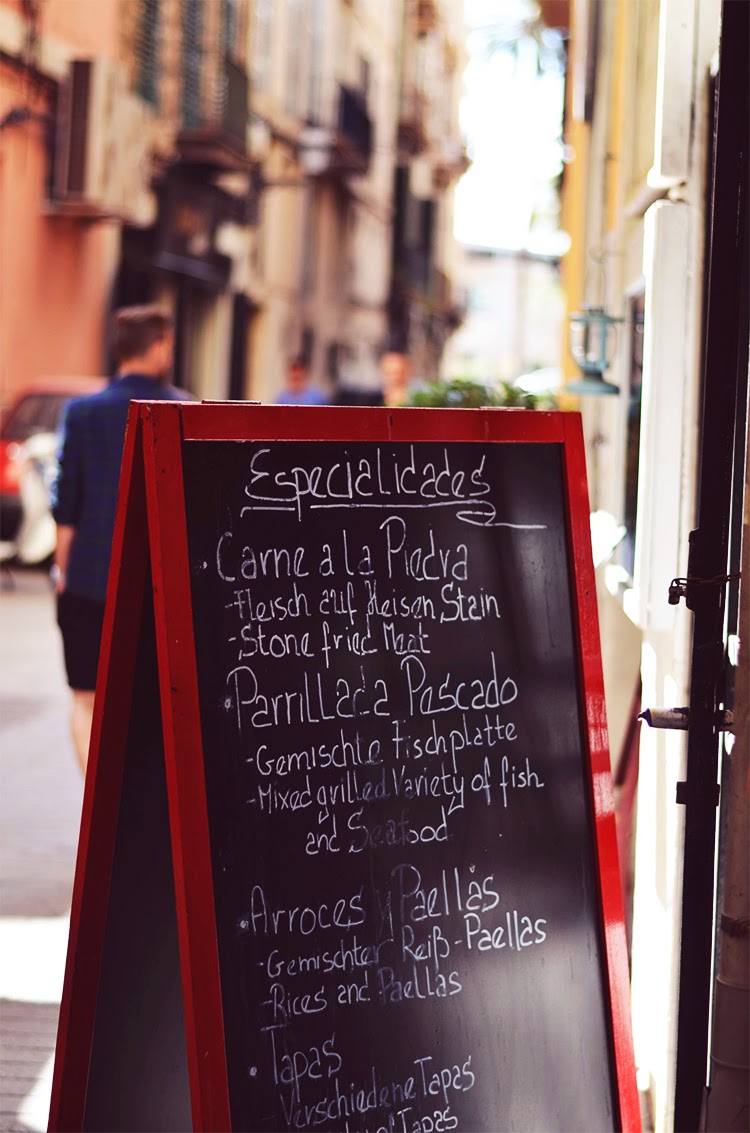 Especialidades
Carne a la Piedra
-Fleisch auf Heisen Stain
-Stone fried Meat
Parrillada Pescado
-Gemischte Fischplatte
-Mixed grilled Variety of fish
and Seafood
Arroces y Paellas
-Gemischter Reiß-Paellas
-Rices and Paellas
Tapas
-Verschiedene Tapas
of Tapas